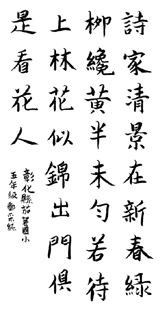 詩家清景在新春綠
柳纔黃半未勻若待
上林花似錦出門俱
是看花人
彰化縣茄荖國小
五年級